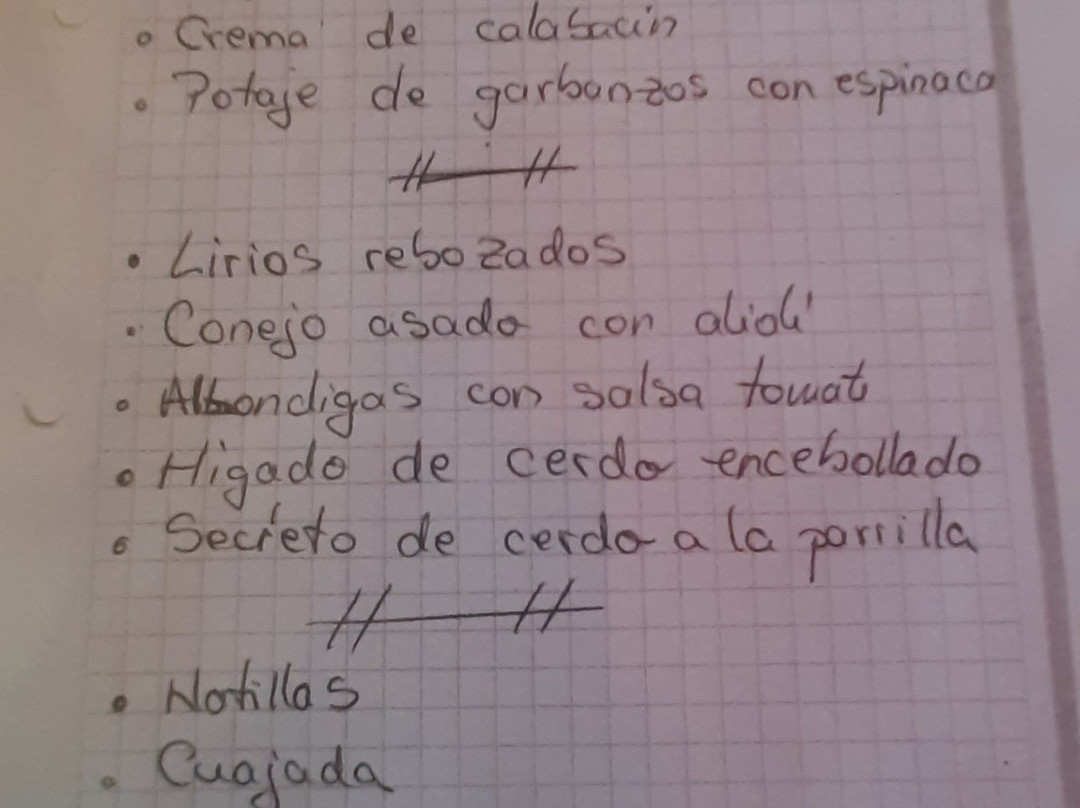 Crema de calabacín
Potaje de garbanzos con espinaca
Lirios rebozados
Conejo asado con alioli
Albondigas con salsa tomat
Higado de cerdo encebollado
Secreto de cerdo a la parrilla
Natillas
Cuajada